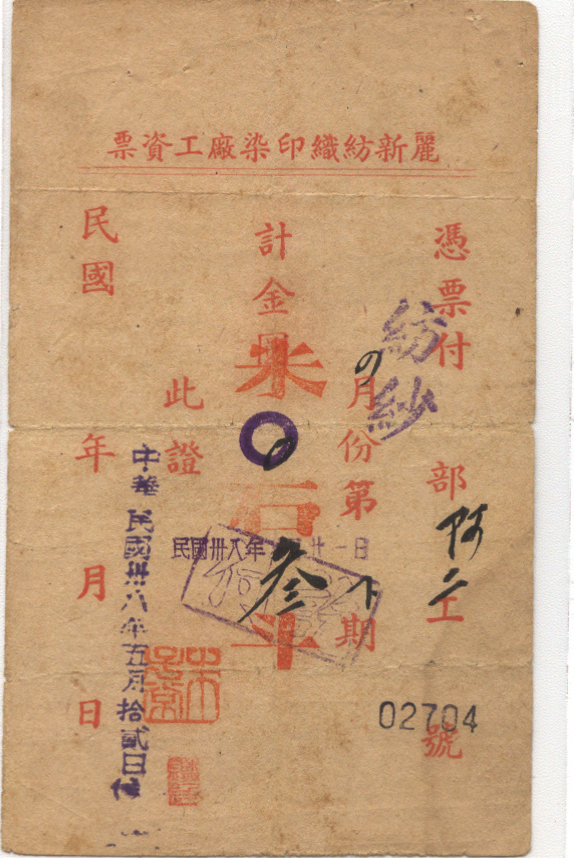 麗新紡織印染廠工資票
憑票付
紡紗
部
阿二
工
02704
號
月份第
下
期
計金
米
〇
石
叁
斗
此證
民國
年
月
日
民國卅八年
廿一日
中華民國卅八年五月拾貳日付